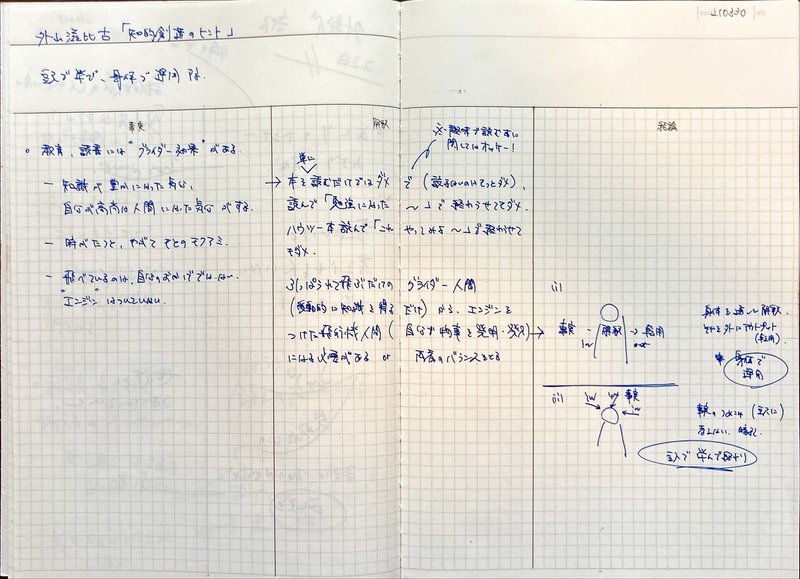 250830
外山滋比古「知的創造のヒント」
頭で学び、身体で運用する。
事実
解釈
結論
○ 教育、読書には“グライダー効果”がある。
- 知識が豊かになった気分。
自分が高尚な人間になった気分がする。
- 時がたつと、やがてもとのモクアミ。
- 飛べているのは、自分のおかげではない。
“エンジン”はついていない。
※趣味で読む分に
関してはオッケー!
単に
→ 本を読むだけではダメで(読まないのはもっとダメ)、
読んで「勉強になった〜」で終わらせてもダメ。
ハウツー本読んで「これやってみよ〜」で終わらせて
もダメ。
ひっぱられて飛ぶだけのグライダー人間
(受動的に知識を得るだけ)から、エンジンを
つけた飛行機人間(自分で物事を発明・発見) →
になる必要がある or 両者のバランスをとる
(i)
事実 → 解釈 → 運用
in
out
身体を通して解釈、
それを外にアウトプット
(運用)
身体で
運用
(ii)
in
in
事実
in
事実のつめこみ(頭に)
頭で学んで終わり